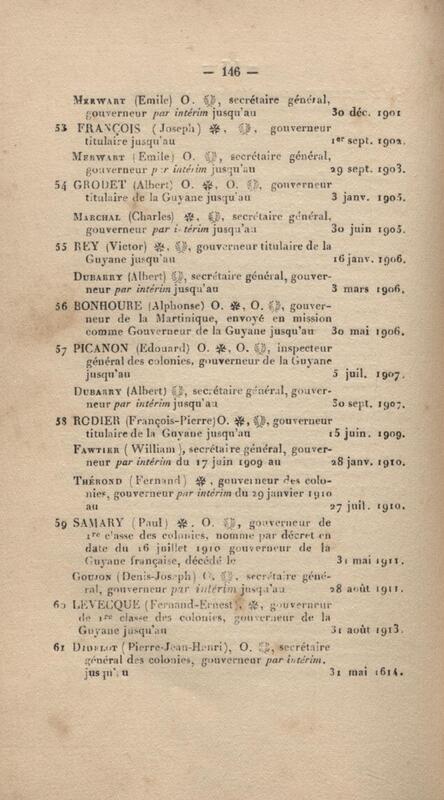 — 146 —
MERWART (Emile) O. , secrétaire général,
gouverneur par intérim jusqu'au 30 déc. 1901
53 FRANÇOIS (Joseph) , , gouverneur
titulaire jusqu'au 1er sept. 1902.
MERWART (Emile) O. , secrétaire général,
gouverneur p r intérim jusqu'au 29 sept. 1903.
54 GRODET (Albert) O. , O. , gouverneur
titulaire de la Guyane jusqu'au 3 janv. 1905.
MARCHAL (Charles) , , secrétaire général,
gouverneur par i térim jusqu'au 30 juin 1905.
55 REY (Victor) , , gouverneur titulaire de la
Guyane jusqu'au 16 janv. 1906.
DUBARRY (Albert) , secrétaire général, gouver-
neur par intérim jusqu'au 3 mars 1906.
56 BONHOURE (Alphonse) O. , O. , gouver-
neur de la Martinique, envoyé en mission
comme Gouverneur de la Guyane jusqu'au 30 mai 1906.
57 PICANON (Edouard) O. , O. , inspecteur
général des colonies, gouverneur de la Guyane
jusqu'au 5 juil. 1907.
DUBARRY (Albert) , secrétaire général, gouver-
neur par intérim jusqu'au 30 sept. 1907.
58 RODIER (François-Pierre) O. , , gouverneur
titulaire de la Guyane jusqu'au 15 juin. 1909.
FAWTIER (William), secrétaire général, gouver-
neur par intérim du 17 juin 1909 au 28 janv. 1910.
THÉROND (Fernand) , gouverneur des colo-
nies, gouverneur par intérim du 29 janvier 1910
au 27 juil. 1910.
59 SAMARY (Paul) . O. , gouverneur de
1re c'asse des colonies, nomme par décret en
date du 16 juillet 1910 gouverneur de la
Guyane française, décédé le 31 mai 1911.
GOUJON (Denis-Joseph) O. . secrétaire géné-
ral, gouverneur par intérim jusqu'au 28 août 1911.
60 LEVECQUE (Fernand-Ernest), , gouverneur
de 1re classe des colonies, gouverneur de la
Guyane jusqu'au 31 août 1913.
61 DIDELOT (Pierre-Jean-Henri), O. , secrétaire
général des colonies, gouverneur par intérim.
jusqu' u 31 mai 1614.